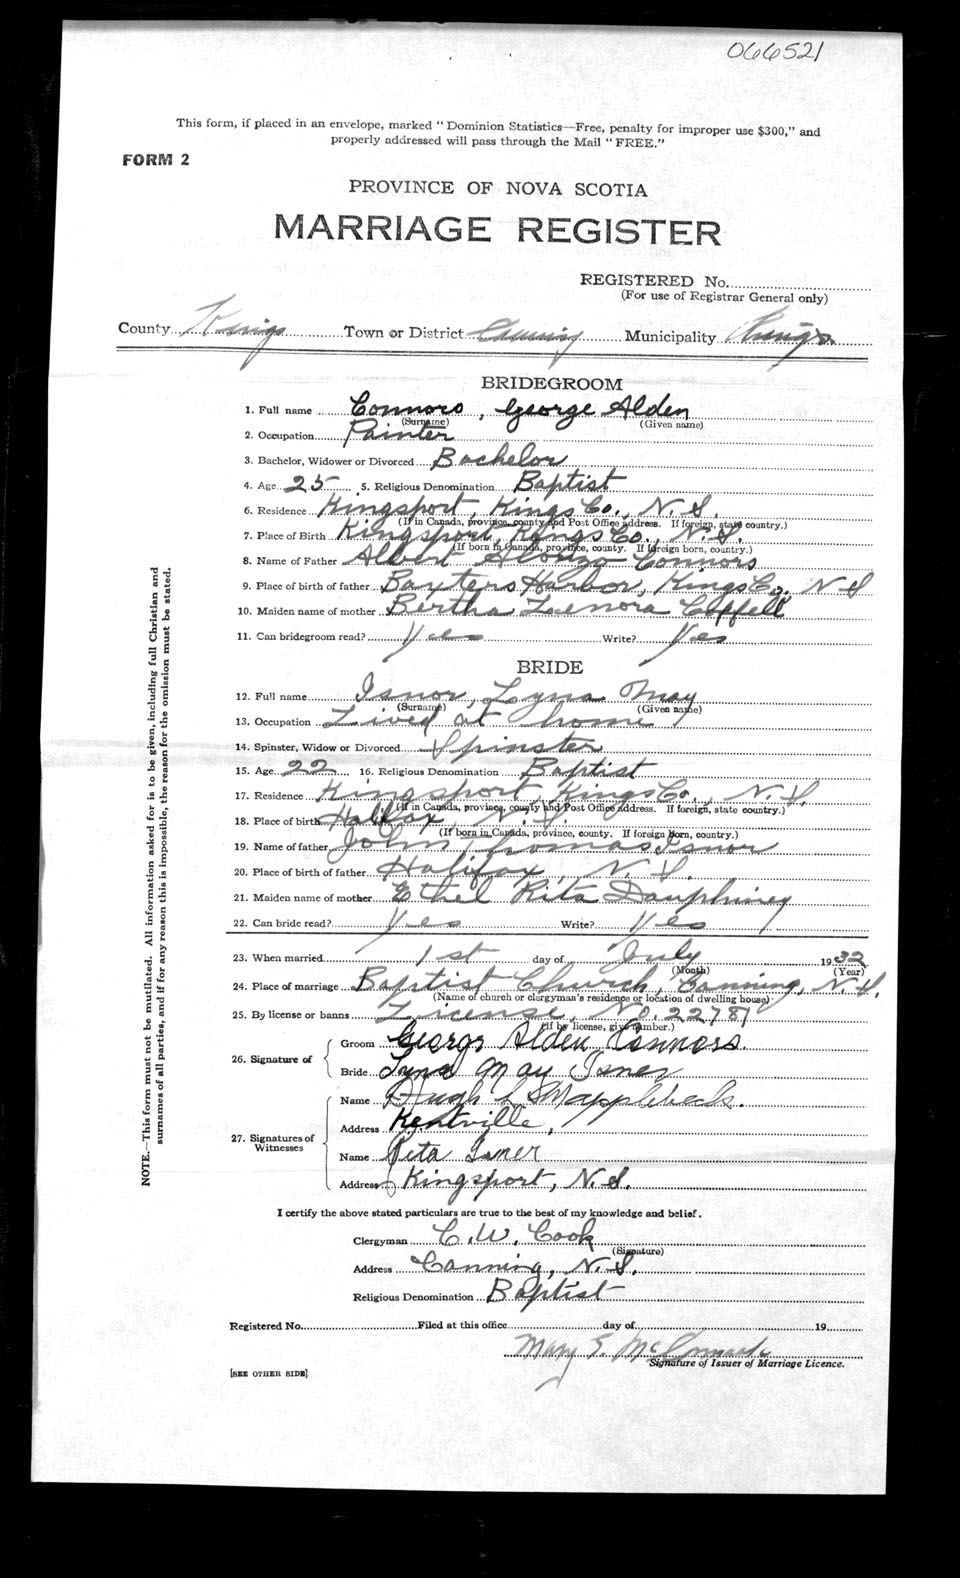 066521
This form, if placed in an envelope, marked " Dominion Statistics—Free, penalty for improper use $300," and
properly addressed will pass through the Mail " FREE."
FORM 2
PROVINCE OF NOVA SCOTIA
MARRIAGE REGISTER
REGISTERED No.
(For use of Registrar General only)
County Kings Town or District Canning Municipality Kings
BRIDEGROOM
1. Full name Connors, George Alden
(Surname) (Given name)
2. Occupation Painter
3. Bachelor, Widower or Divorced Bachelor
4. Age 25 5. Religious Denomination Baptist
6. Residence Kingsport, Kings Co., N.S.
(If in Canada, province, county and Post Office address. If foreign, state country.)
7. Place of Birth Kingsport, Kings Co., N.S.
(If born in Canada, province, county. If foreign born, country.)
8. Name of Father Albert Alonzo Connors
9. Place of birth of father Baxters Harbor, Kings Co. N S
10. Maiden name of mother Bertha Leenora Coffell
11. Can bridegroom read? Yes Write? Yes
BRIDE
12. Full name Isnor, Lyna May
(Surname) (Given name)
13. Occupation Lived at home
14. Spinster, Widow or Divorced Spinster
15. Age 22 16. Religious Denomination Baptist
17. Residence Kingsport, Kings Co., N.S.
(If in Canada, province, county and Post Office address. If foreign, state country.)
18. Place of birth Halifax, N.S.
(If born in Canada, province, county. If foreign born, country.)
19. Name of father John Thomas Isnor
20. Place of birth of father Halifax, N.S.
21. Maiden name of mother Ethel Rita Dauphiney
22. Can bride read? Yes Write? Yes
23. When married 1st day of July 1932
(Month) (Year)
24. Place of marriage Baptist Church, Canning, N.S.
(Name of church or clergyman's residence or location of dwelling house)
25. By license or banns License, No. 22781
(If by license, give number.)
26. Signature of
Groom George Alden Connors
Bride Lyna May Isner
27. Signatures of Witnesses
Name Hugh L
Address Kentville,
Name Rita Isner
Address Kingsport, N.S.
I certify the above stated particulars are true to the best of my knowledge and belief.
Clergyman C. W. Cook
(Signature)
Address Canning, N.S.
Religious Denomination Baptist
Registered No. Filed at this office day of 19
Mary E.
Signature of Issuer of Marriage Licence.
[SEE OTHER SIDE]
NOTE.—This form must not be mutilated. All information asked for is to be given, including full Christian and
surnames of all parties, and if for any reason this is impossible, the reason for the omission must be stated.